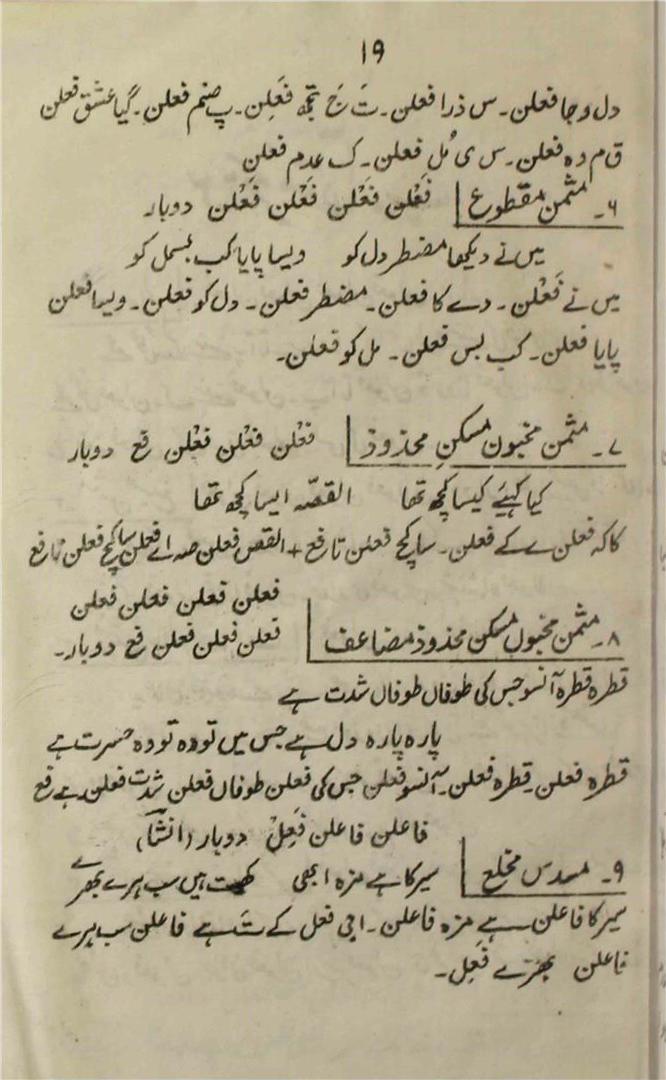 ۱۹
دل و جا فعلن۔ س ذرا فعلن۔ تَ جَ تجھ فَعَلِن۔ پِ صنم فعلن۔ گیا عشق فعلن
ق م دہ فعلن۔ س ی مُل فعلن۔ ک عدم فعلن
۶۔ مثمن مقطوع فَعْلن فَعْلن فَعْلن فَعْلن دوبار
میں نے دیکھا مضطر دل کو ویسا پایا کب بسمل کو
میں نے فَعْلن۔ دے کا فعلن۔ مضطر فعلن۔ دل کو فعلن۔ ویسا فعلن
پایا فعلن۔ کب بس فعلن۔ مل کو فعلن۔
۷۔ مثمن مخبون مسکن محذوذ فعْلن فعْلن فعْلن فع دوبار
کیا کہیئے کیسا کچھ تھا القصّہ ایسا کچھ تھا
کا کہ فعلن ے کے فعلن۔ سا کچ فعلن تا فع + القص فعلن صہ اے فعلن سا کچ فعلن تا فع
فعلن فعلن فعلن فعلن
۸۔ مثمن مخبول مسکن محذوذ مضاعف فعلن فعلن فعلن فع دوبار۔
قطرہ قطرہ آنسو جس کی طوفاں طوفاں شدت ہے
پارہ پارہ دل ہے جس میں تودہ تودہ حسرت ہے
قطرہ فعلن قطرہ فعلن۔ آنسو فعلن جس کی فعلن طوفاں فعلن شدت فعلن ہے فع
فاعلن فاعلن فَعِلْ دوبار (انشآ)
۹۔ مسدس مخلع سیر کا ہے مزہ ابھی کھیت ہیں سب ہرے بھرے
سیر کا فاعلن ہے مزہ فاعلن۔ ابی فعل کے تَ ہے فاعلن سب ہرے
فاعلن بھرے فَعِل۔